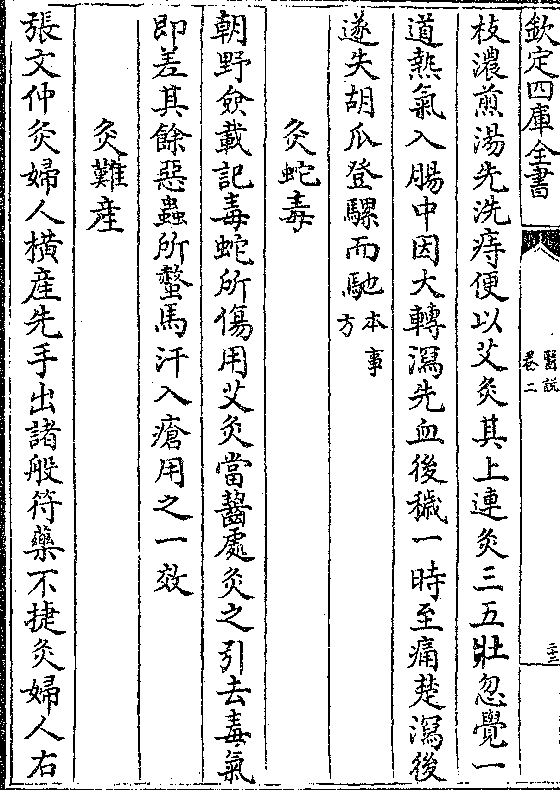 欽定四庫全書
醫說
卷二
二十三
枝濃煎湯先洗痔便以艾灸其上連灸三五壯忽覺一
道熱氣入腸中因大轉瀉先血後穢一時至痛楚瀉後
遂失胡瓜登騾而馳本事
方
灸蛇毒
朝野僉載記毒蛇所傷用艾灸當齧處灸之引去毒氣
即差其餘惡蟲所螫馬汗入瘡用之一效
灸難産
張文仲灸婦人橫産先手出諸般符藥不捷灸婦人右